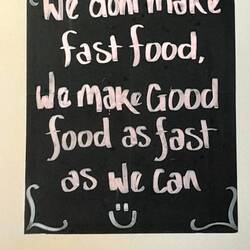 We dont make
fast food,
We make Good
food as fast
as We can